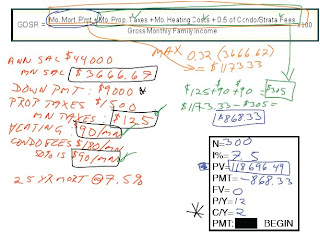 GDSR = Mo. Mort. Pmt + Mo. Prop. Taxes + Mo. Heating Costs + 0.5 of Condo/Strata Fees x100
Gross Monthly Family Income
ANN SAL $44000
MN SAL $3666.67
DOWN PMT: $9000
PROP TAXES $1500
MN TAXES: $125
HEATING $90/mn
CONDO FEES $180/mn
50% IS $90/mn
25 YR MORT @ 7.5%
MAX 0.32 (3666.62)
= $1173.33
$125 + $90 + $90 = $305
$1173.33 - $305 =
$868.33
N=300
I%= 7.5
PV= 118696.49
PMT= -868.33
FV= 0
P/Y= 12
C/Y= 2
* PMT: BEGIN